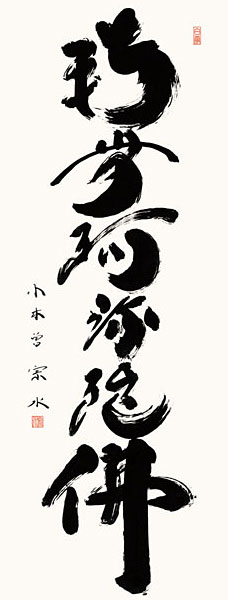 南無阿弥陀佛
小木曽宗水